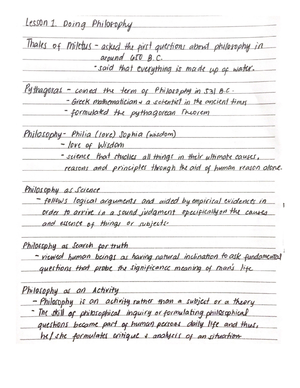 Lesson 1. Doing Philosophy
Thales of Miletus - asked the first questions about philosophy in
around 650 B.C.
- said that everything is made up of water.
Pythagoras - coined the term of Philosophy in 531 B.C.
- Greek mathematician & a scientist in the ancient times
- formulated the pythagorean theorem
Philosophy - Philia (love) Sophia (wisdom)
- love of Wisdom
- science that studies all things in their ultimate causes,
reasons and principles through the aid of human reason alone.
Philosophy as Science
- follows logical arguments and aided by empirical evidences in
order to arrive in a sound judgment specifically on the causes
and essence of things or subjects.
Philosophy as Search for truth
- viewed human beings as having natural inclination to ask fundamental
questions that probe the significance meaning of man's life
Philosophy as an Activity
- Philosophy is an activity rather than a subject or a theory
- The skill of philosophical inquiry or formulating philosophical
questions became part of human persons daily life and thus,
he/she formulates critique & analysis of an situation